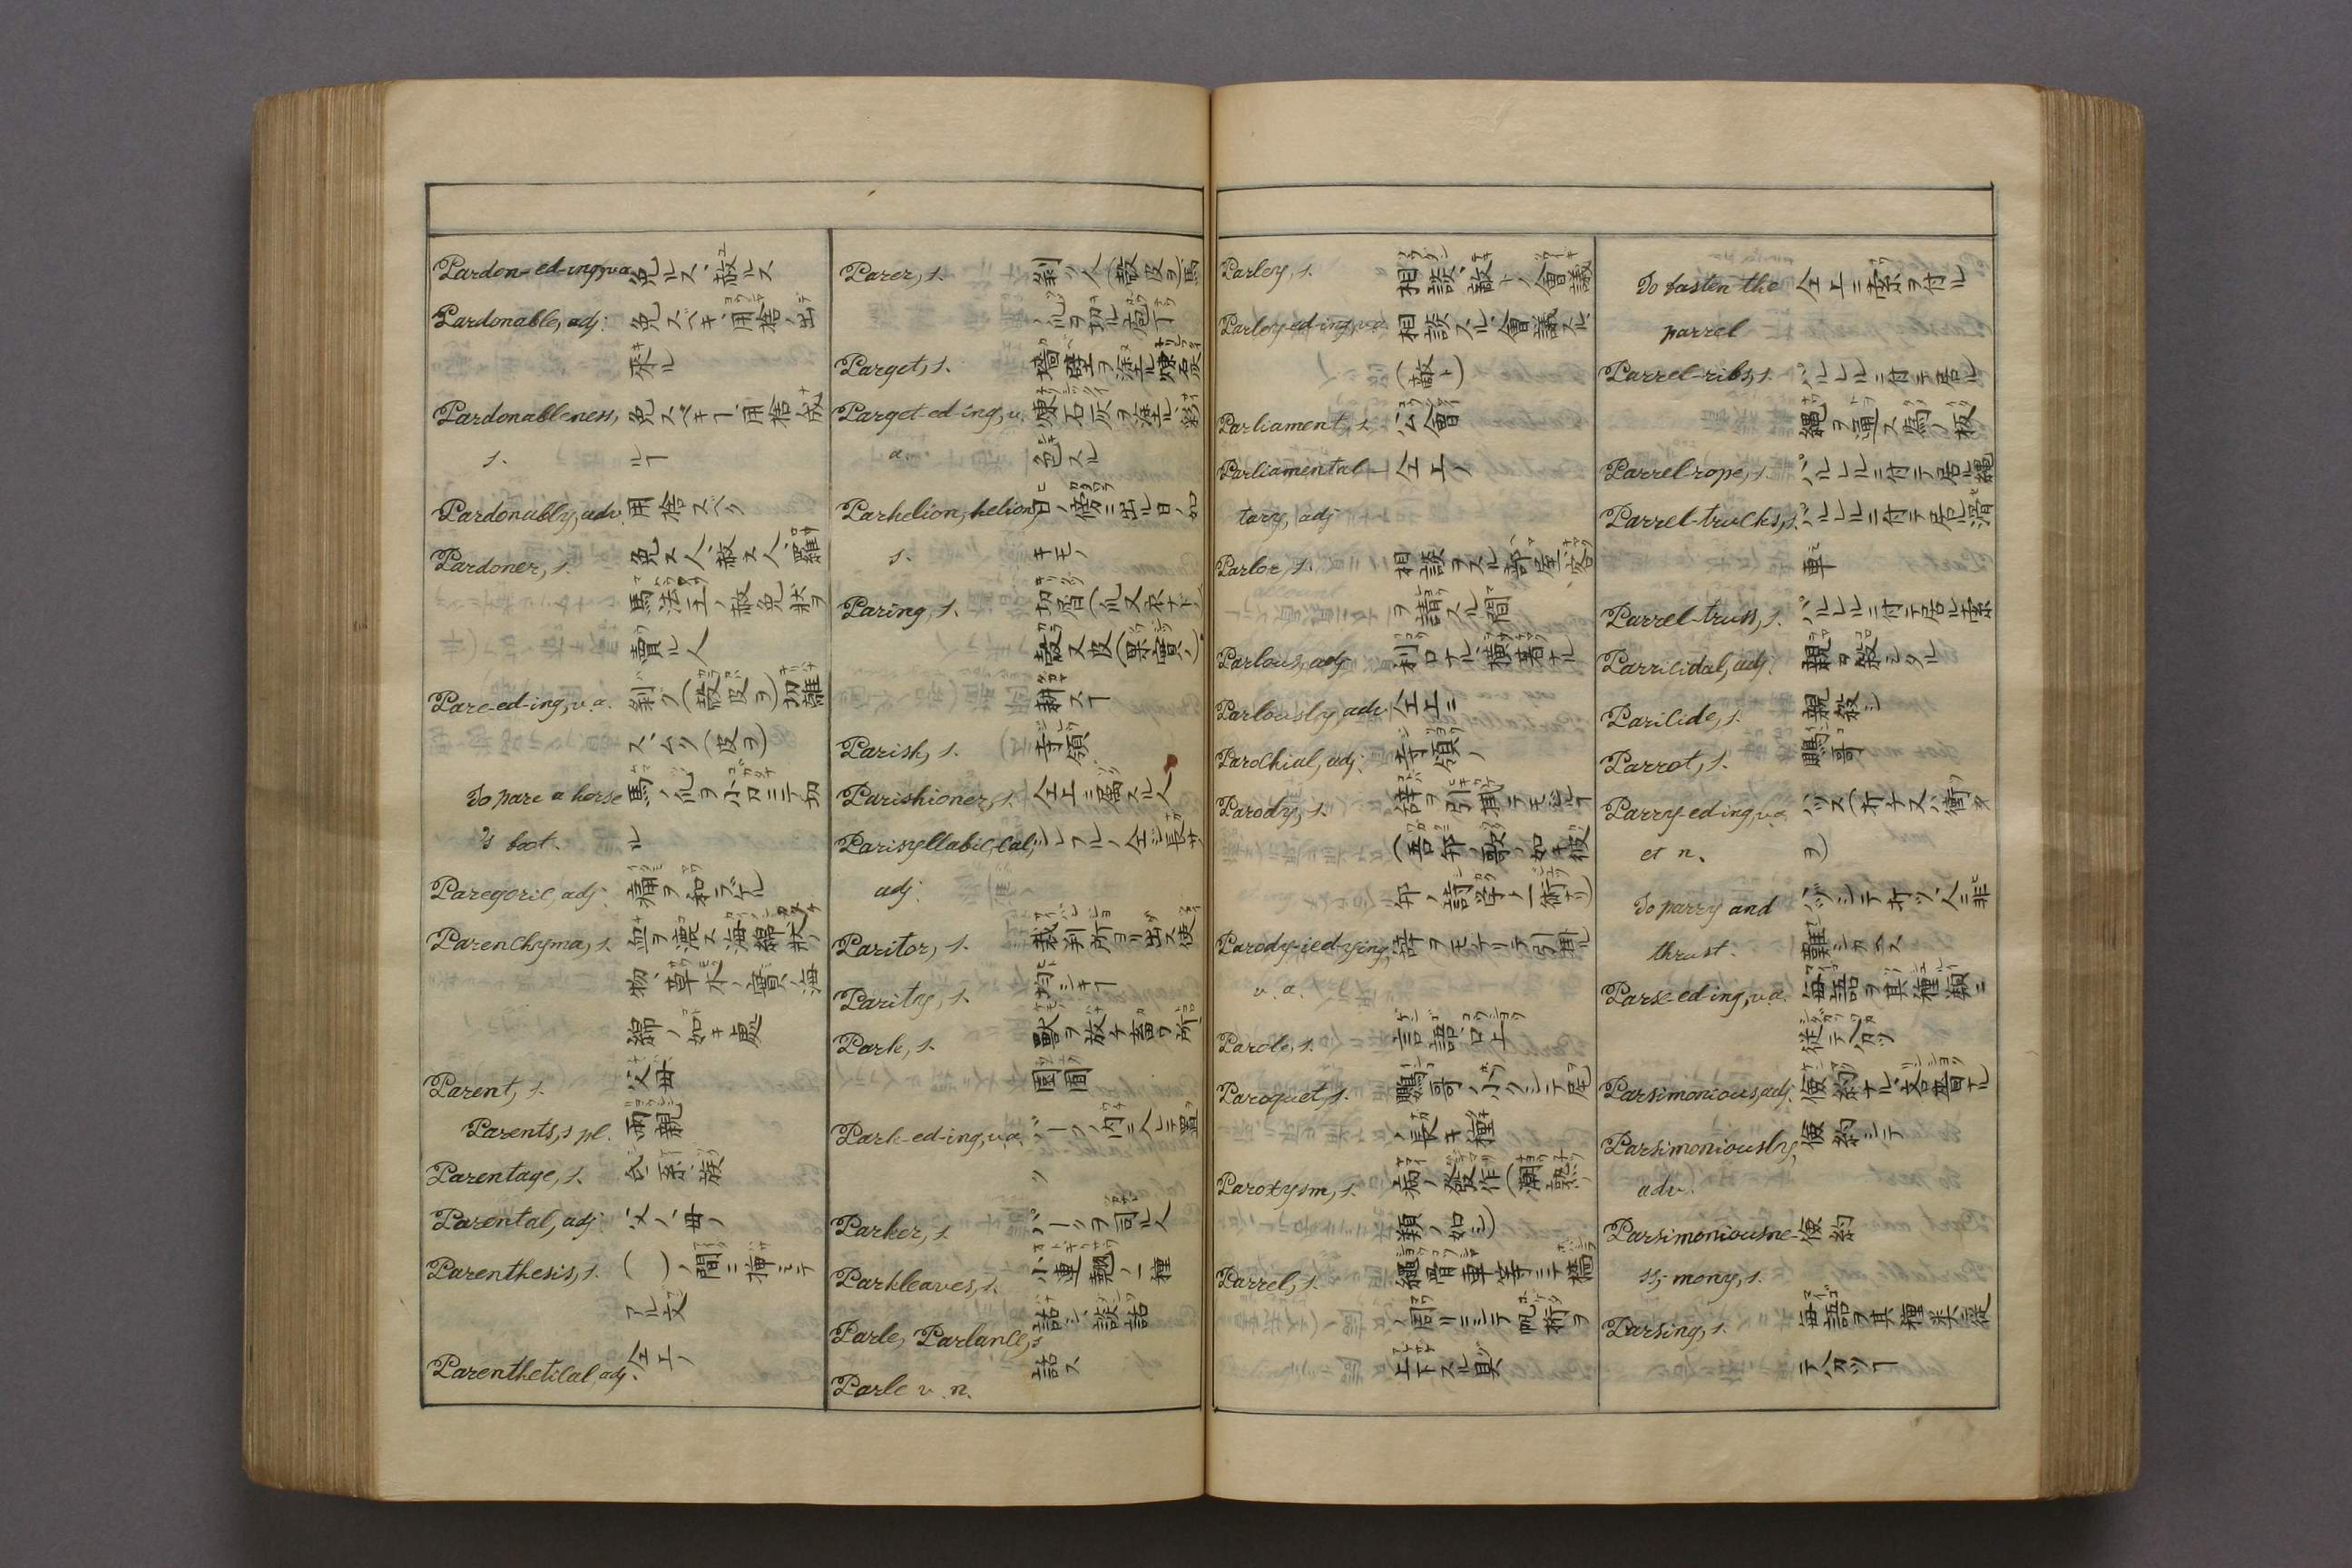 Pardon-ed-ing, v.a. 免ルス、赦ルス
Pardonable, adj. 免スベキ、用捨ノ出
来ル
Pardonableness, 免スベキー、用捨ノ成
s. ルー
Pardonably, adv. 用捨スベク
Pardoner, s. 免ス人、赦ス人、羅
馬法王ノ赦免状ヲ
賣ル人
Pare-ed-ing, v.a. 剥グ(殻皮ヲ)切離
ス、ムク(皮ヲ)
To pare a horse 馬ノ爪ヲ小口ニテ切
's foot. ル
Paregoric, adj. 痛ヲ和ラゲル
Parenchyma, s. 血ヲ漉ス海綿状ノ
物、草木ノ實ノ海
綿ノ如キ處
Parent, s. 父母
Parents, s pl. 両親
Parentage, s. 氏、系、族
Parental, adj. 父ノ、母ノ
Parenthesis, s. ( )ノ間ニ挿ミテ
アル文
Parenthetical, adj. 仝上ノ
Parer, s. 剥ク人(殻皮ヲ)馬
ノ爪ヲ切ル庖丁
Parget, s. 墻壁ヲ塗ル煉石灰
Parget-ed-ing, v. 煉石灰ヲ塗ル、彩
a. 色スル
Parhelion, helion, 日ノ傍ニ出ル日ノ如
s. キモノ
Paring, s. 切屑(爪又木ナドノ)
殻又皮(果實ノ)
耕スー
Parish, s. 寺領
Parishioner, s. 仝上ニ寓スル人
Parisyllabic, cal, シレフルノ仝ジ長サ
adj.
Paritor, s. 裁判所ヨリ出ス使
Parity, s. 均シキー
Park, s. 獸ヲ放ケ畜フ所
園囿
Park-ed-ing, v.a. パークノ内ニ入レテ置
ク
Parker, s. パークヲ司ル人
Parkleaves, s. 小連翹ノ一種
Parle, Parlance, s 話シ、談話
Parle v. n. 話ス
Parley, s. 相談、敵トノ會議
Parley-ed-ing, v.a. 相談スル、會議スル
(敵ト)
Parliament, s. 公會
Parliamental- 仝上ノ
tary, adj
Parlor, s. 相談ヲスル部屋、客
ヲ請スル間
Parlous, adj. 利口ナル、横着ナル
Parlously, adv. 仝上ニ
Parochial, adj. 寺領ノ
Parody, s. 辞ヲ引掛テモヂルー
(吾邦ノ歌ノ如キ彼
邦ノ詩學ノ一術ナリ)
Parody-ied-ying, 辞ヲモヂリテ引用ル
v. a.
Parole, s. 言語、口上
Paroquet, s. 鸚哥ノ小クシテ尾
ノ長キ種
Paroxysm, s. 病ノ發作(潮熱ノ
類ノ如シ)
Parrel, s. 繩滑車等ニテ檣
ノ周リニシテ帆桁ヲ
上下スル具
To fasten the 仝上ニ索ヲ付ル
parrel
Parrel-ribs, s. パルレルニ付テ居ル
繩ヲ通ス為ノ板
Parrel-rope, s. パルレルニ付テ居ル繩
Parrel-trucks, s. パルレルニ付テ居ル滑
車
Parrel-truss, s. パルレルニ付テ居ル索
Parricidal, adj. 親ヲ殺シタル
Paricide, s. 親殺シ
Parrot, s. 鸚哥
Parry-ed-ing, v.a. ハヅス(ホナスノ衝ク
et n. ヲ)
To parry and ハヅシテホナク、人ニ非
thrust. 難シカヘス
Parse-ed-ing, v.a. 毎語ヲ其種類ニ
従テ分カツ
Parsimonious, adj. 倹約ナル、吝嗇ナル
Parsimoniously, 倹約シテ
adv.
Parsimoniousne- 倹約
ss, mony, s.
Parsing, s. 毎語ヲ其種类ニ従
テ分カツー